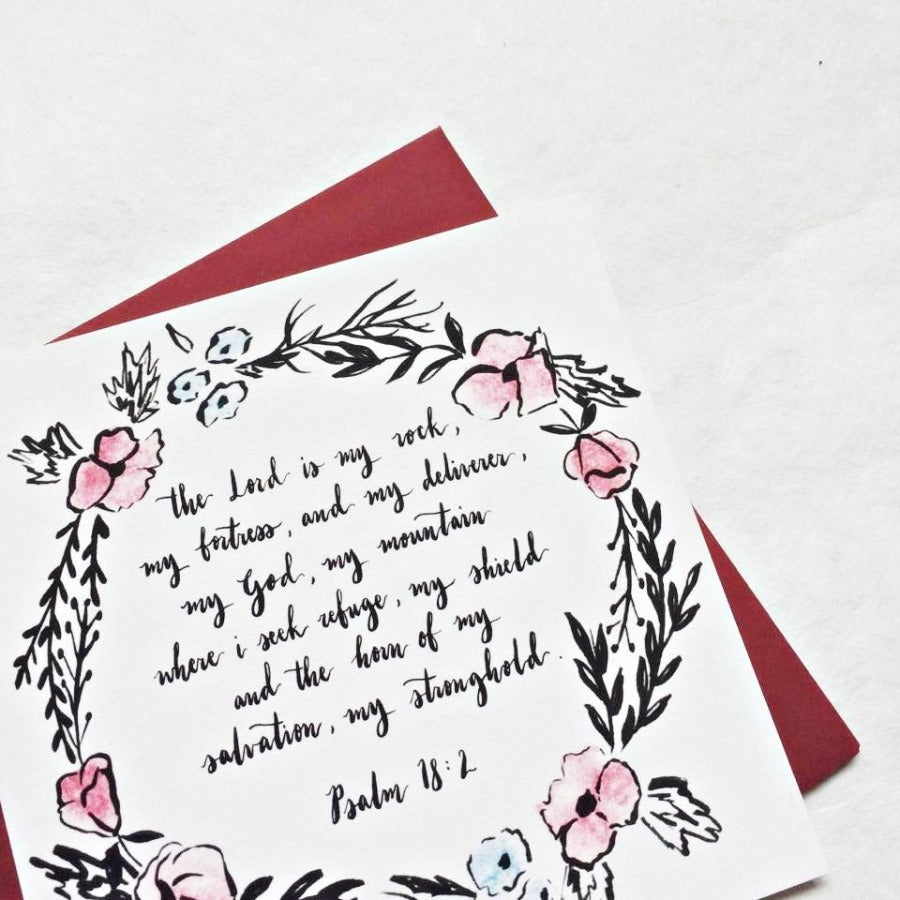 the Lord is my rock,
my fortress, and my deliverer,
my God, my mountain
where i seek refuge, my shield
and the horn of my
salvation, my stronghold.
Psalm 18:2